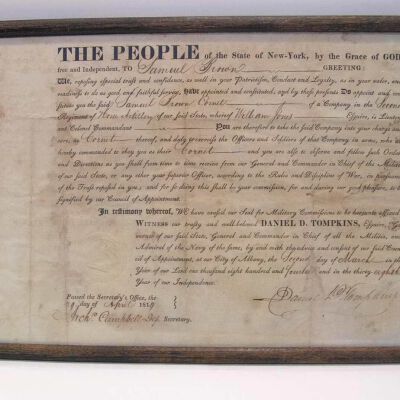 THE PEOPLE of the State of New-York, by the Grace of GOD
free and Independent, TO Samuel Dixon GREETING:
We, reposing special trust and confidence, as well in your Patriotism, Conduct and Loyalty, as in your valor, and
readiness to do us good and faithful service, Have appointed and constituted, and by these presents Do appoint and con-
stitute you the said Samuel Dixon Cornet of a Company in the Second
Regiment of Horse Artillery of our said State, whereof William Jones Esquire, is Lieuten
ant Colonel Commandant You are therefore to take the said Company into your charge and
care, as Cornet thereof, and duly to exercise the Officers and Soldiers of that Company in arms, who are
hereby commanded to obey you as their Cornet and you are also to observe and follow such Orders
and Directions as you shall from time to time receive from our General and Commander in Chief of the Militia
of our said State, or any other your Superior Officer, according to the Rules and Discipline of War, in pursuance
of the Trust reposed in you; and for so doing this shall be your commission, for and during our good pleasure, to be
signified by our Council of Appointment.
In testimony whereof, We have caused our Seal for Military Commissions to be hereunto affixed
WITNESS our trusty and well-beloved DANIEL D. TOMPKINS, Esquire, Go
of our said State, General and Commander in Chief of all the Militia, and
Admiral of the Navy of the same, by and with the advice and consent of our said Council
of Appointment, at our City of Albany, the Second day of March in the
Year of our Lord one thousand eight hundred and fourteen and in the thirty eighth
Year of our Independence.
Passed the Secretary's Office, the
9 day of April 1814 Daniel D Tompkins
Archd Campbell Dep. Secretary.